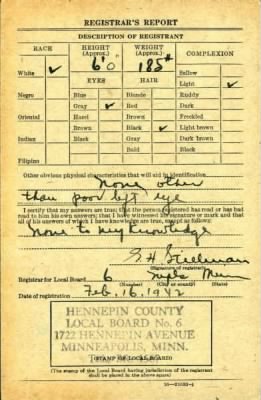 REGISTRAR'S REPORT
DESCRIPTION OF REGISTRANT
RACE HEIGHT (Approx.) WEIGHT (Approx.) COMPLEXION
6'0 185#
White ✓ Sallow
EYES HAIR Light ✓
Negro Blue Blonde Ruddy
Gray ✓ Red Dark
Oriental Hazel Brown Freckled
Brown Black ✓ Light brown
Indian Black Gray Dark brown
Bald Black
Filipino
Other obvious physical characteristics that will aid in identification
None other
than poor left eye
I certify that my answers are true; that the person registered has read or has had
read to him his own answers; that I have witnessed his signature or mark and that
all of his answers of which I have knowledge are true, except as follows:
None to my knowledge
(Signature of registrar)
Registrar for Local Board 6 Mpls Minn
Date of registration Feb. 16, 1942
HENNEPIN COUNTY
LOCAL BOARD No. 6
1722 HENNEPIN AVENUE
MINNEAPOLIS, MINN.
(STAMP OF LOCAL BOARD)
(The stamp of the Local Board having jurisdiction of the registrant
shall be placed in the above space)